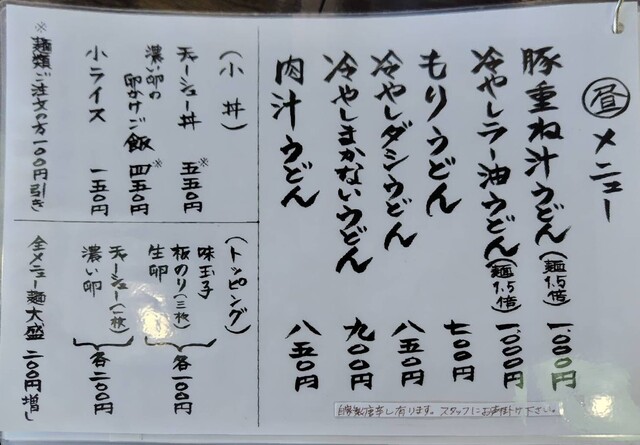 昼メニュー
豚重ね汁うどん(麺1.5倍) 1,000円
冷やしラー油うどん(麺1.5倍) 1,000円
もりうどん 七〇〇円
冷やしダシうどん 八五〇円
冷やしまかないうどん 九〇〇円
肉汁うどん 八五〇円
自家製唐辛し有ります。スタッフにお声掛け下さい。
(小丼)
チャーシュー丼 五五〇円※
濃い卵の
卵かけご飯 四五〇円※
小ライス 一五〇円
※麺類ご注文の方一〇〇円引き
(トッピング)
味玉子
板のり(三枚)
生卵
各一〇〇円
チャーシュー(一枚)
濃い卵
各二〇〇円
全メニュー麺大盛 二〇〇円増し